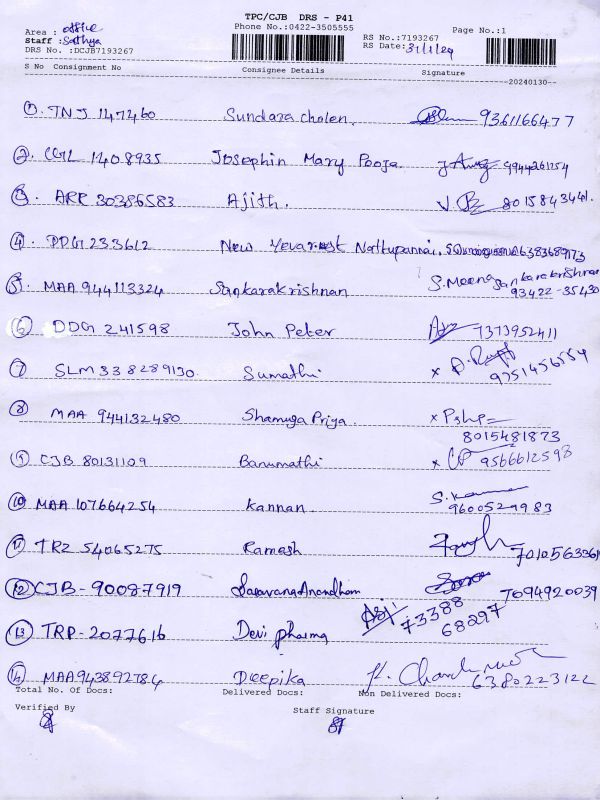 TPC/CJB DRS - P41
Area : office Phone No.:0422-3505555 Page No.:1
Staff : Sathya RS No.:7193267
DRS No. :DCJB7193267 RS Date: 31/1/24
S No Consignment No Consignee Details Signature --20240130--
1. TNJ 147460 Sundara cholen. 9361166477
2. CGL 1408935 Josephin Mary Pooja. 9944261254
3. ARK 30386583 Ajith. 8015843441.
4. DDG 233612 New Yevarest Nattupannai, 6383689173
5. MAA 944113324 Sankarakrishnan S. Meena Sankarakrishnan
93422-35430
6 DDG 241598 John Peter 7373952411
7 SLM 338289130. Sumathi x 9751456554
8 MAA 944132480 Shamuga Priya. x
8015481873
9 CJB 80131109 Banumathi x 9566612598
10 MAA 107664254 Kannan. 9600529983
11 TRZ 54065275 Ramesh 7010563361
12 CJB-90087919 Saravana Anandham 7094920039
13 TRP-2077616 Devi pharma 73388
68297
14 MAA943892784 Deepika 6380223122
Total No. Of Docs: Delivered Docs: Non Delivered Docs:
Verified By Staff Signature